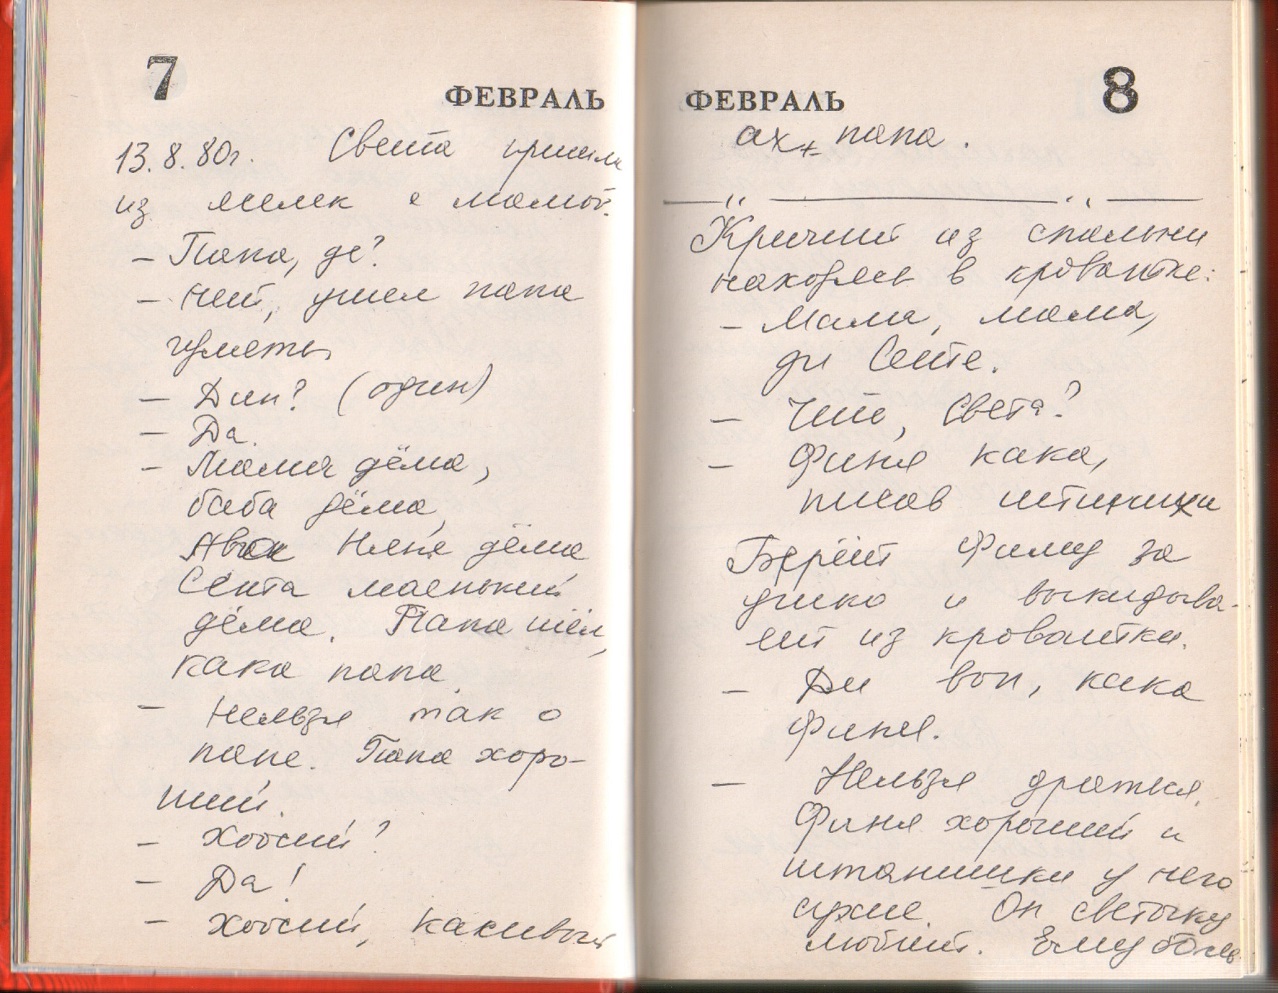 7
ФЕВРАЛЬ
13.8.80г. Света пришла
из яслек с мамой.
– Папа, де?
– Нет, ушел папа
гулять
– Дин? (один)
– Да.
– Мама дёма,
баба дёма,
Няня дёма
Сента маенький
дёма. Папа шёл,
кака папа.
– Нельзя так о
папе. Папа хоро-
ший.
– Хоосий?
– Да!
– Хоосий, касивый
ФЕВРАЛЬ
8
ах папа.
Кричит из спальни
находясь в кроватке:
– Мама, мама,
ди Сенте.
– Что, Света?
– Финя кака,
писав
Берёт Фиму за
ушко и выкидыва-
ет из кроватки.
– Ди вон, кака
Финя.
– Нельзя драться.
Финя хороший и
штанишки у него
сухие. Он Светочку
любит. Ему боль